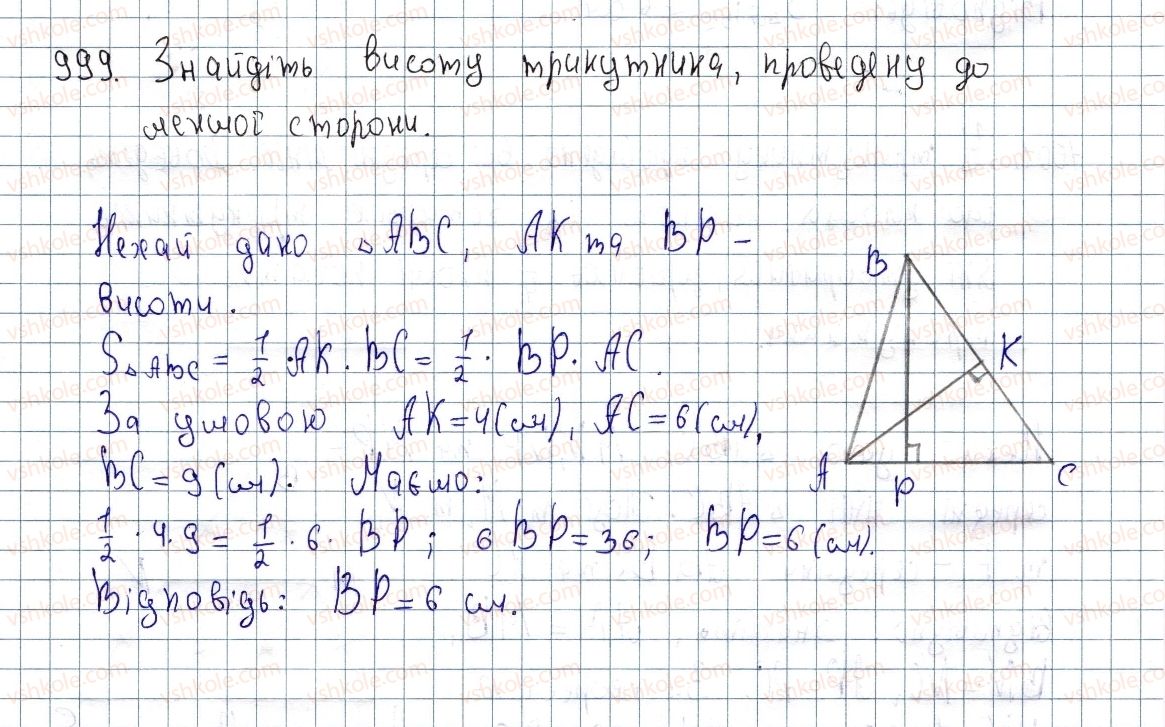 999. Знайдіть висоту трикутника, проведену до
меншої сторони.
Нехай дано △ABC, AK та BP –
висоти.
S△ABC = 1/2 · AK · BC = 1/2 · BP · AC.
За умовою AK = 4 (см), AC = 6 (см),
BC = 9 (см). Маємо:
1/2 · 4 · 9 = 1/2 · 6 · BP; 6 BP = 36; BP = 6 (см).
Відповідь: BP = 6 см.
B
K
A
P
C
vshkole.com